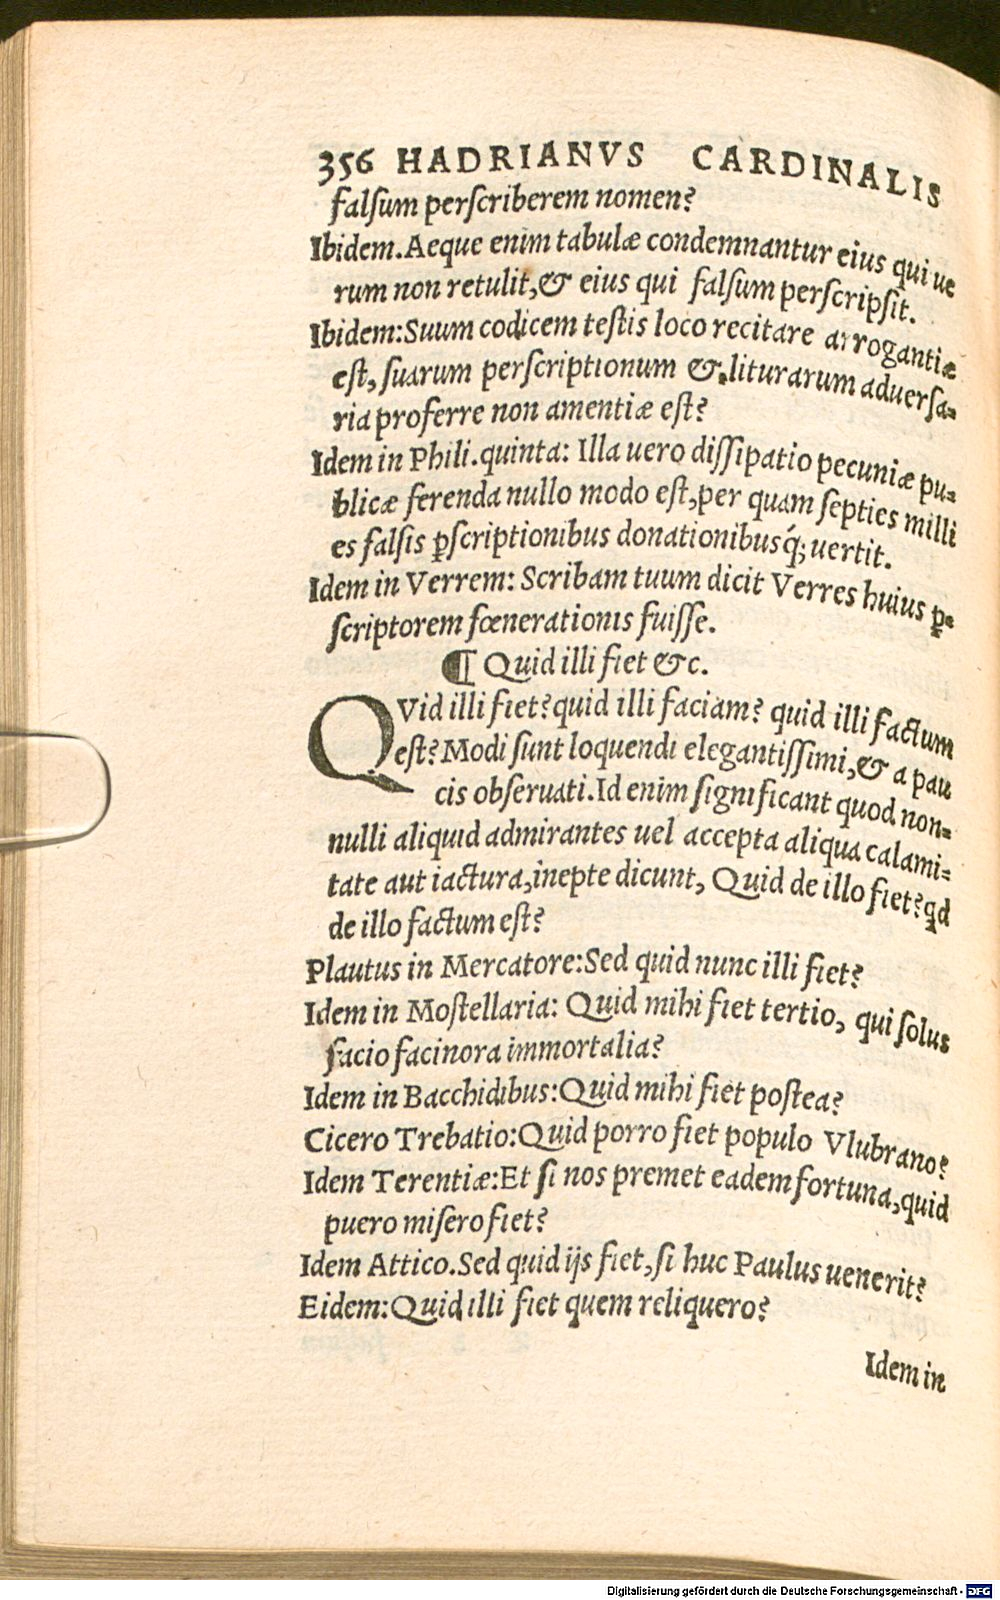 356 HADRIANVS CARDINALIS
falſum perſcriberem nomen?
Ibidem. Aeque enim tabulæ condemnantur eius qui ue
rum non retulit, & eius qui falſum perſcripſit.
Ibidem: Suum codicem teſtis loco recitare arrogantiæ
eſt, ſuarum perſcriptionum &, liturarum aduerſa-
ria proferre non amentiæ eſt?
Idem in Phili. quinta: Illa uero diſſipatio pecuniæ pu-
blicæ ferenda nullo modo eſt, per quam ſepties milli
es falſis ꝑſcriptionibus donationibusq́; uertit.
Idem in Verrem: Scribam tuum dicit Verres huius ꝑ-
ſcriptorem fœnerationis fuiſſe.
¶ Quid illi fiet &c.
QVid illi fiet? quid illi faciam? quid illi factum
eſt? Modi ſunt loquendi elegantiſſimi, & a pau
cis obſeruati. Id enim ſignificant quod non-
nulli aliquid admirantes uel accepta aliqua calami-
tate aut iactura, inepte dicunt, Quid de illo fiet? qd
de illo factum eſt?
Plautus in Mercatore: Sed quid nunc illi fiet?
Idem in Moſtellaria: Quid mihi fiet tertio, qui ſolus
facio facinora immortalia?
Idem in Bacchidibus: Quid mihi fiet poſtea?
Cicero Trebatio: Quid porro fiet populo Vlubrano?
Idem Terentiæ: Et ſi nos premet eadem fortuna, quid
puero miſero fiet?
Idem Attico. Sed quid ijs fiet, ſi huc Paulus uenerit?
Eidem: Quid illi fiet quem reliquero?
Idem in
Digitalisierung gefördert durch die Deutsche Forschungsgemeinschaft - DFG